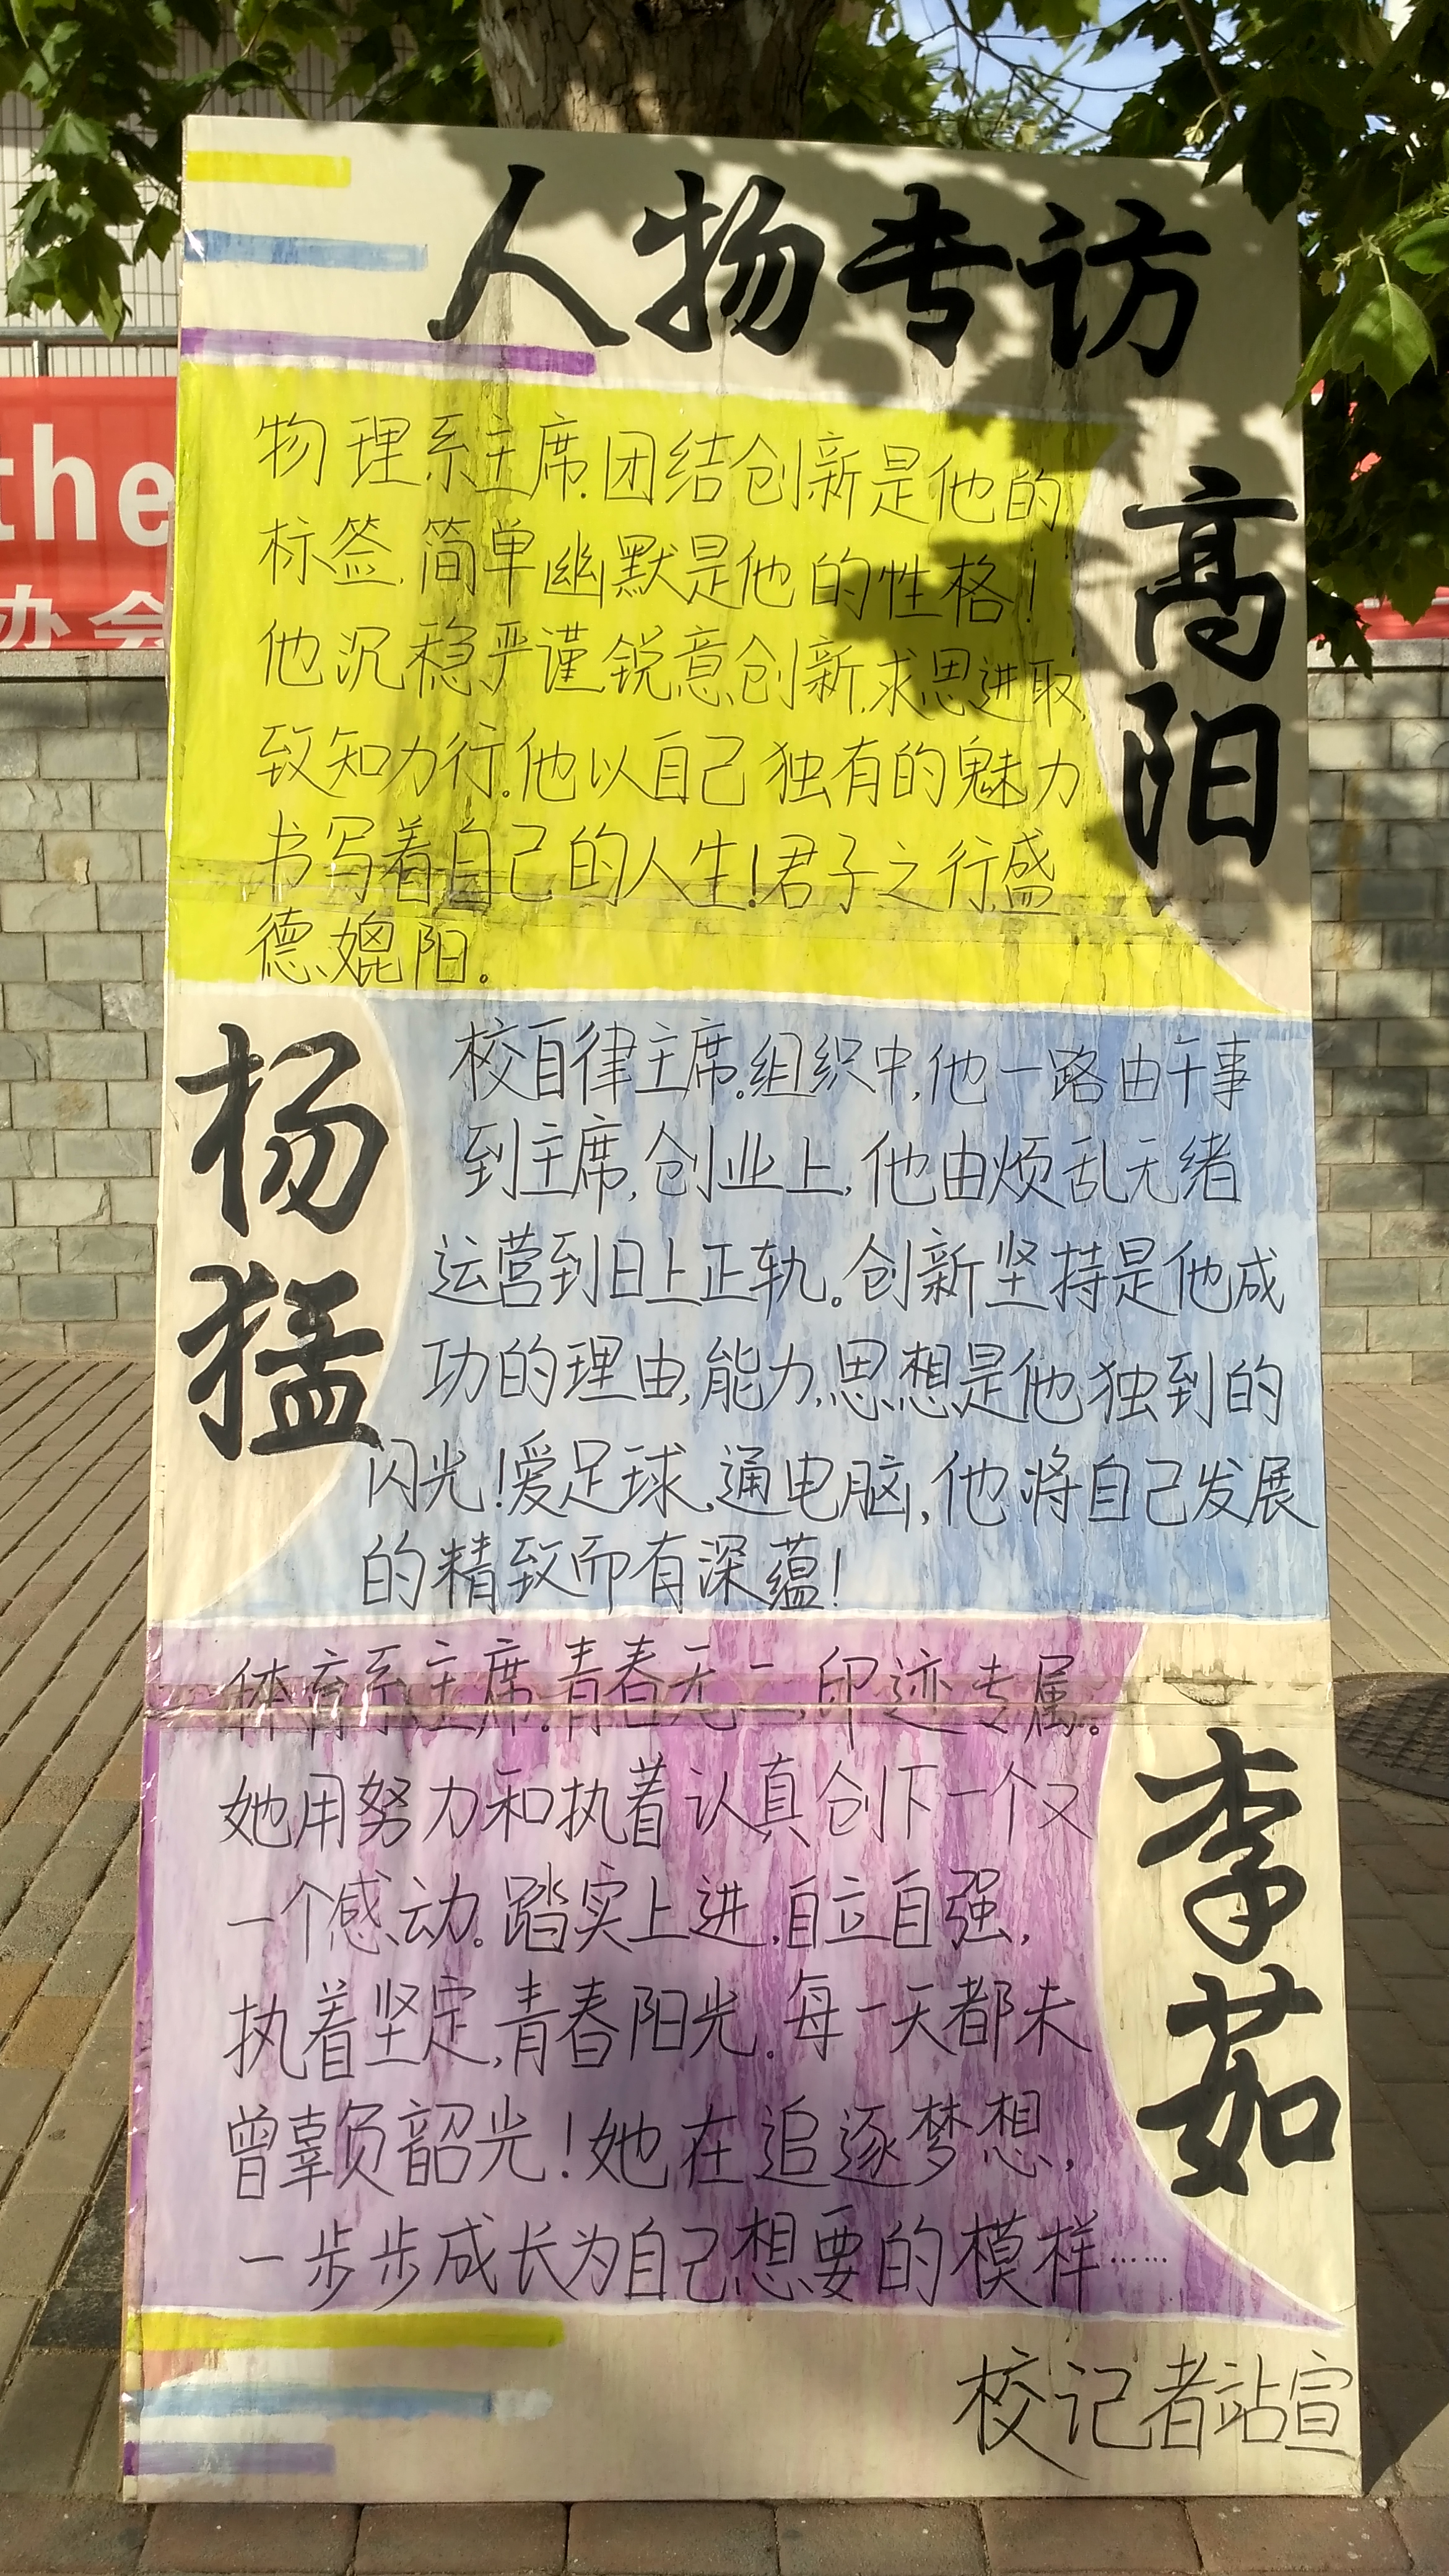 人物专访
the
协会
高阳
物理系主席.团结创新是他的
标签,简单幽默是他的性格!
他沉稳严谨锐意创新,求思进取,
致知力行.他以自己独有的魅力
书写着自己的人生!君子之行,盛
德媲阳。
杨猛
校自律主席。组织中,他一路由干事
到主席,创业上,他由烦乱无绪
运营到日上正轨。创新坚持是他成
功的理由,能力,思想是他独到的
闪光!爱足球,通电脑,他将自己发展
的精致而有深蕴!
李茹
体育系主席.青春无二,印迹专属。
她用努力和执着认真创下一个又
一个感动。踏实上进,自立自强,
执着坚定,青春阳光。每一天都未
曾辜负韶光!她在追逐梦想,
一步步成长为自己想要的模样……
校记者站宣